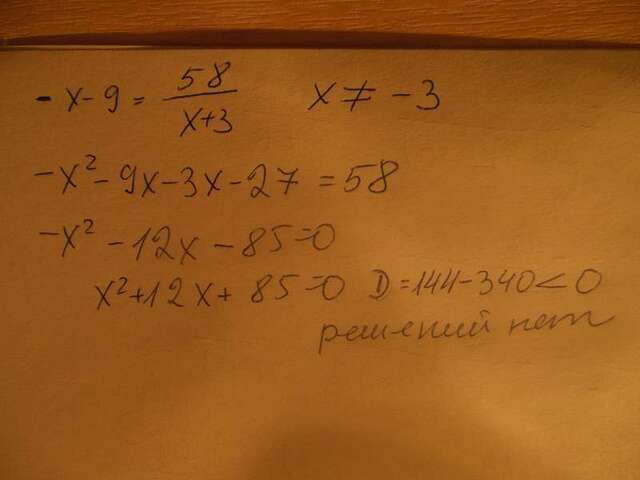 - x - 9 = 58/(x+3) x ≠ -3
-x² - 9x - 3x - 27 = 58
-x² - 12x - 85 = 0
x² + 12x + 85 = 0 D = 144 - 340 < 0
решений нет